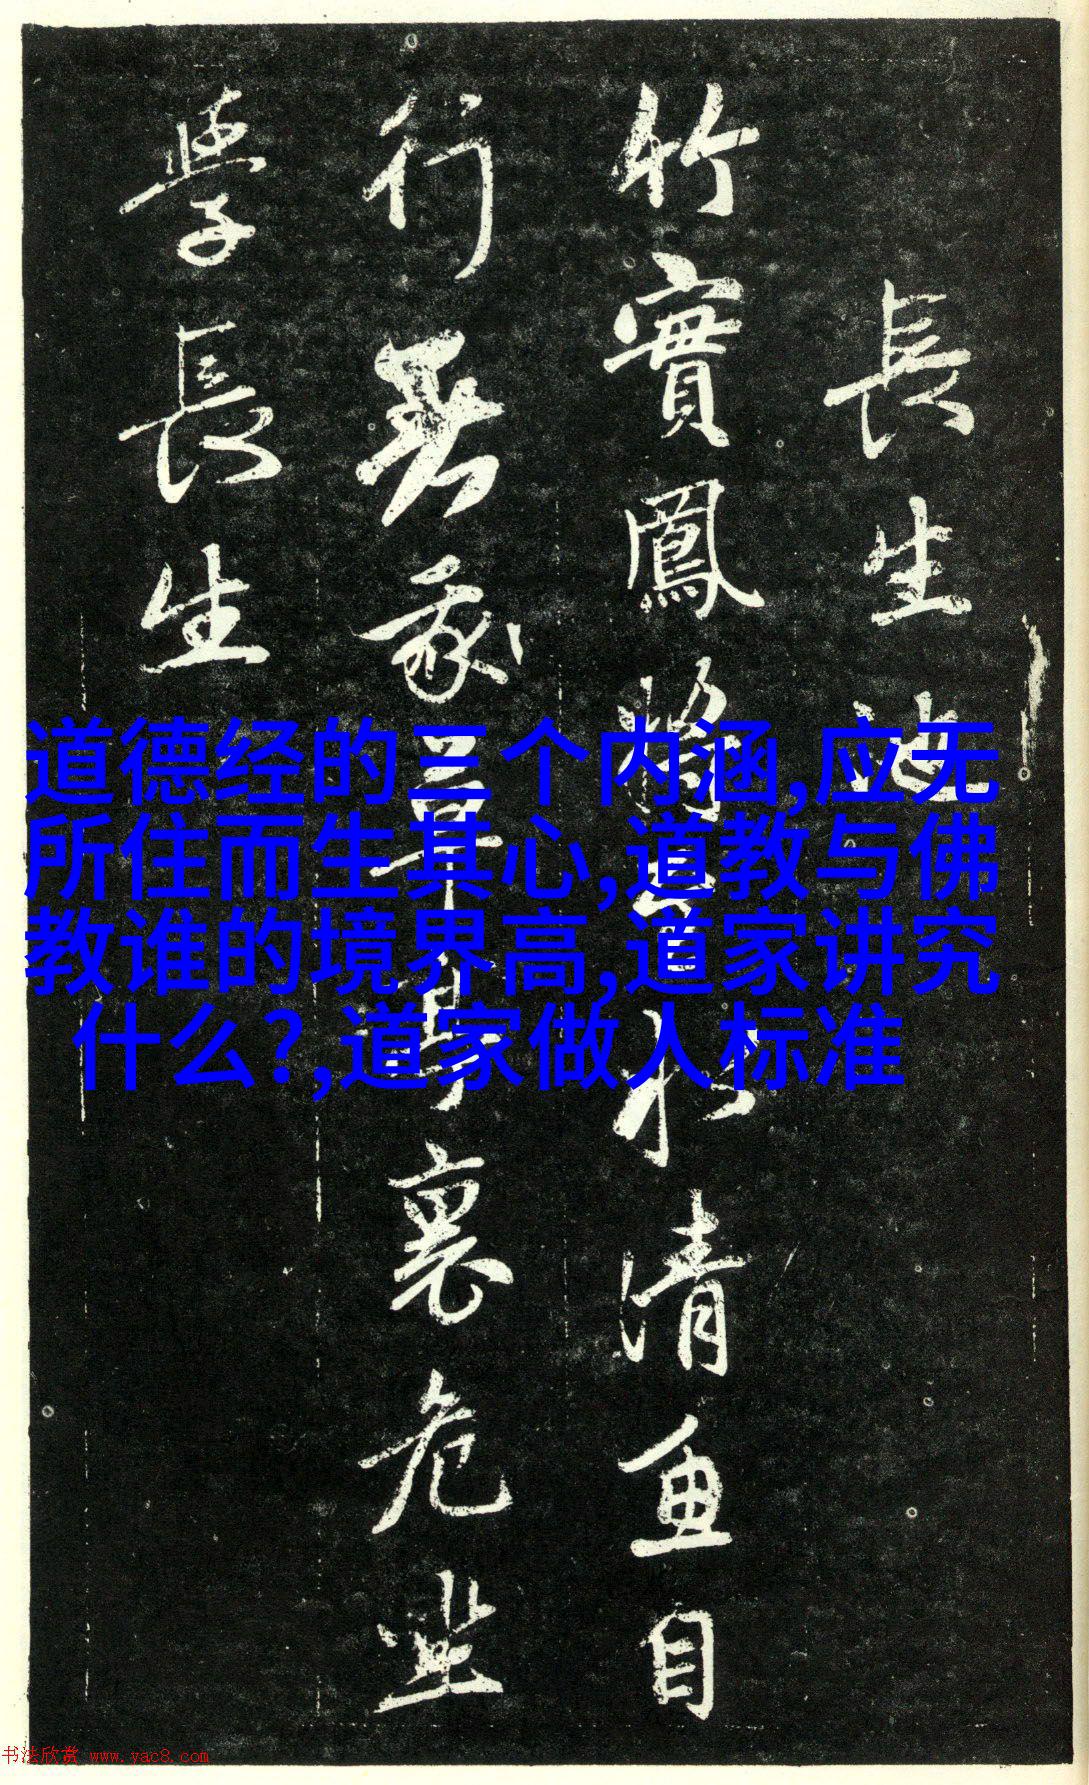 長生池
竹實鳳將至水清魚自
行裏危坐
學長生
道德经的三个内涵,应无
所住而生其心,道教与佛
教谁的境界高,道家讲究
什么?,道家做人标准
书法欣赏 www.yac8.com